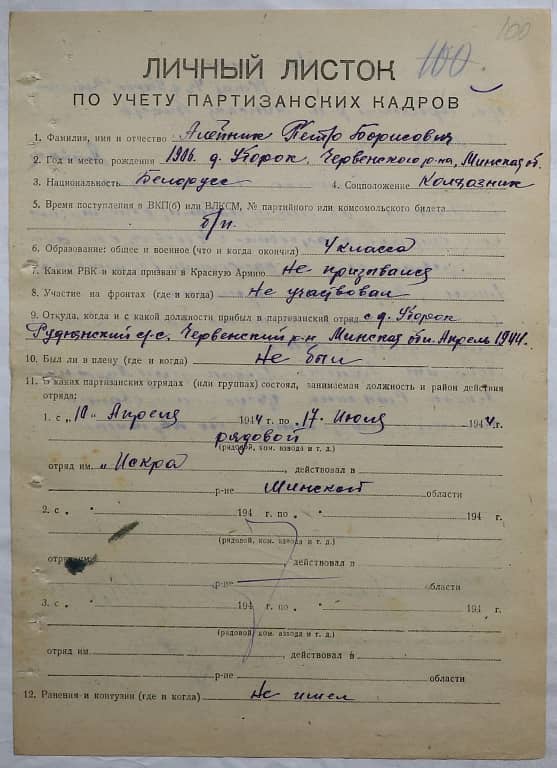 100
100.
ЛИЧНЫЙ ЛИСТОК
ПО УЧЕТУ ПАРТИЗАНСКИХ КАДРОВ
1. Фамилия, имя и отчество Алейник Петр Борисович
2. Год и место рождения 1906. д. Уборок, Червенского р-на, Минская об.
3. Национальность Белорусс 4. Соцположение Колхозник
5. Время поступления в ВКП(б) или ВЛКСМ, № партийного или комсомольского билета
б/п.
6. Образование: общее и военное (что и когда окончил) 4 класса
7. Каким РВК и когда призван в Красную Армию Не призывался
8. Участие на фронтах (где и когда) Не участвовал
9. Откуда, когда и с какой должности прибыл в партизанский отряд с д. Уборок
Руднянский с/с. Червенский р-н Минская Апрель 1944.
10. Был ли в плену (где и когда) Не был
11. В каких партизанских отрядах (или группах) состоял, занимаемая должность и район действия
отряда:
1. с „10" Апреля 1944 г. по „17" Июля 1944 г.
рядовой
(рядовой, ком. взвода и т. д.)
отряд им. „Искра , действовал в
р-не Минской области
2. с „ " 194 г. по „ " 194 г.
(рядовой, ком. взвода и т. д.)
отряд им. , действовал в
р-не области
3. с „ " 194 г. по „ " 194 г.
(рядовой, ком. взвода и т. д.)
отряд им. , действовал в
р-не области
12. Ранения и контузии (где и когда) Не имел